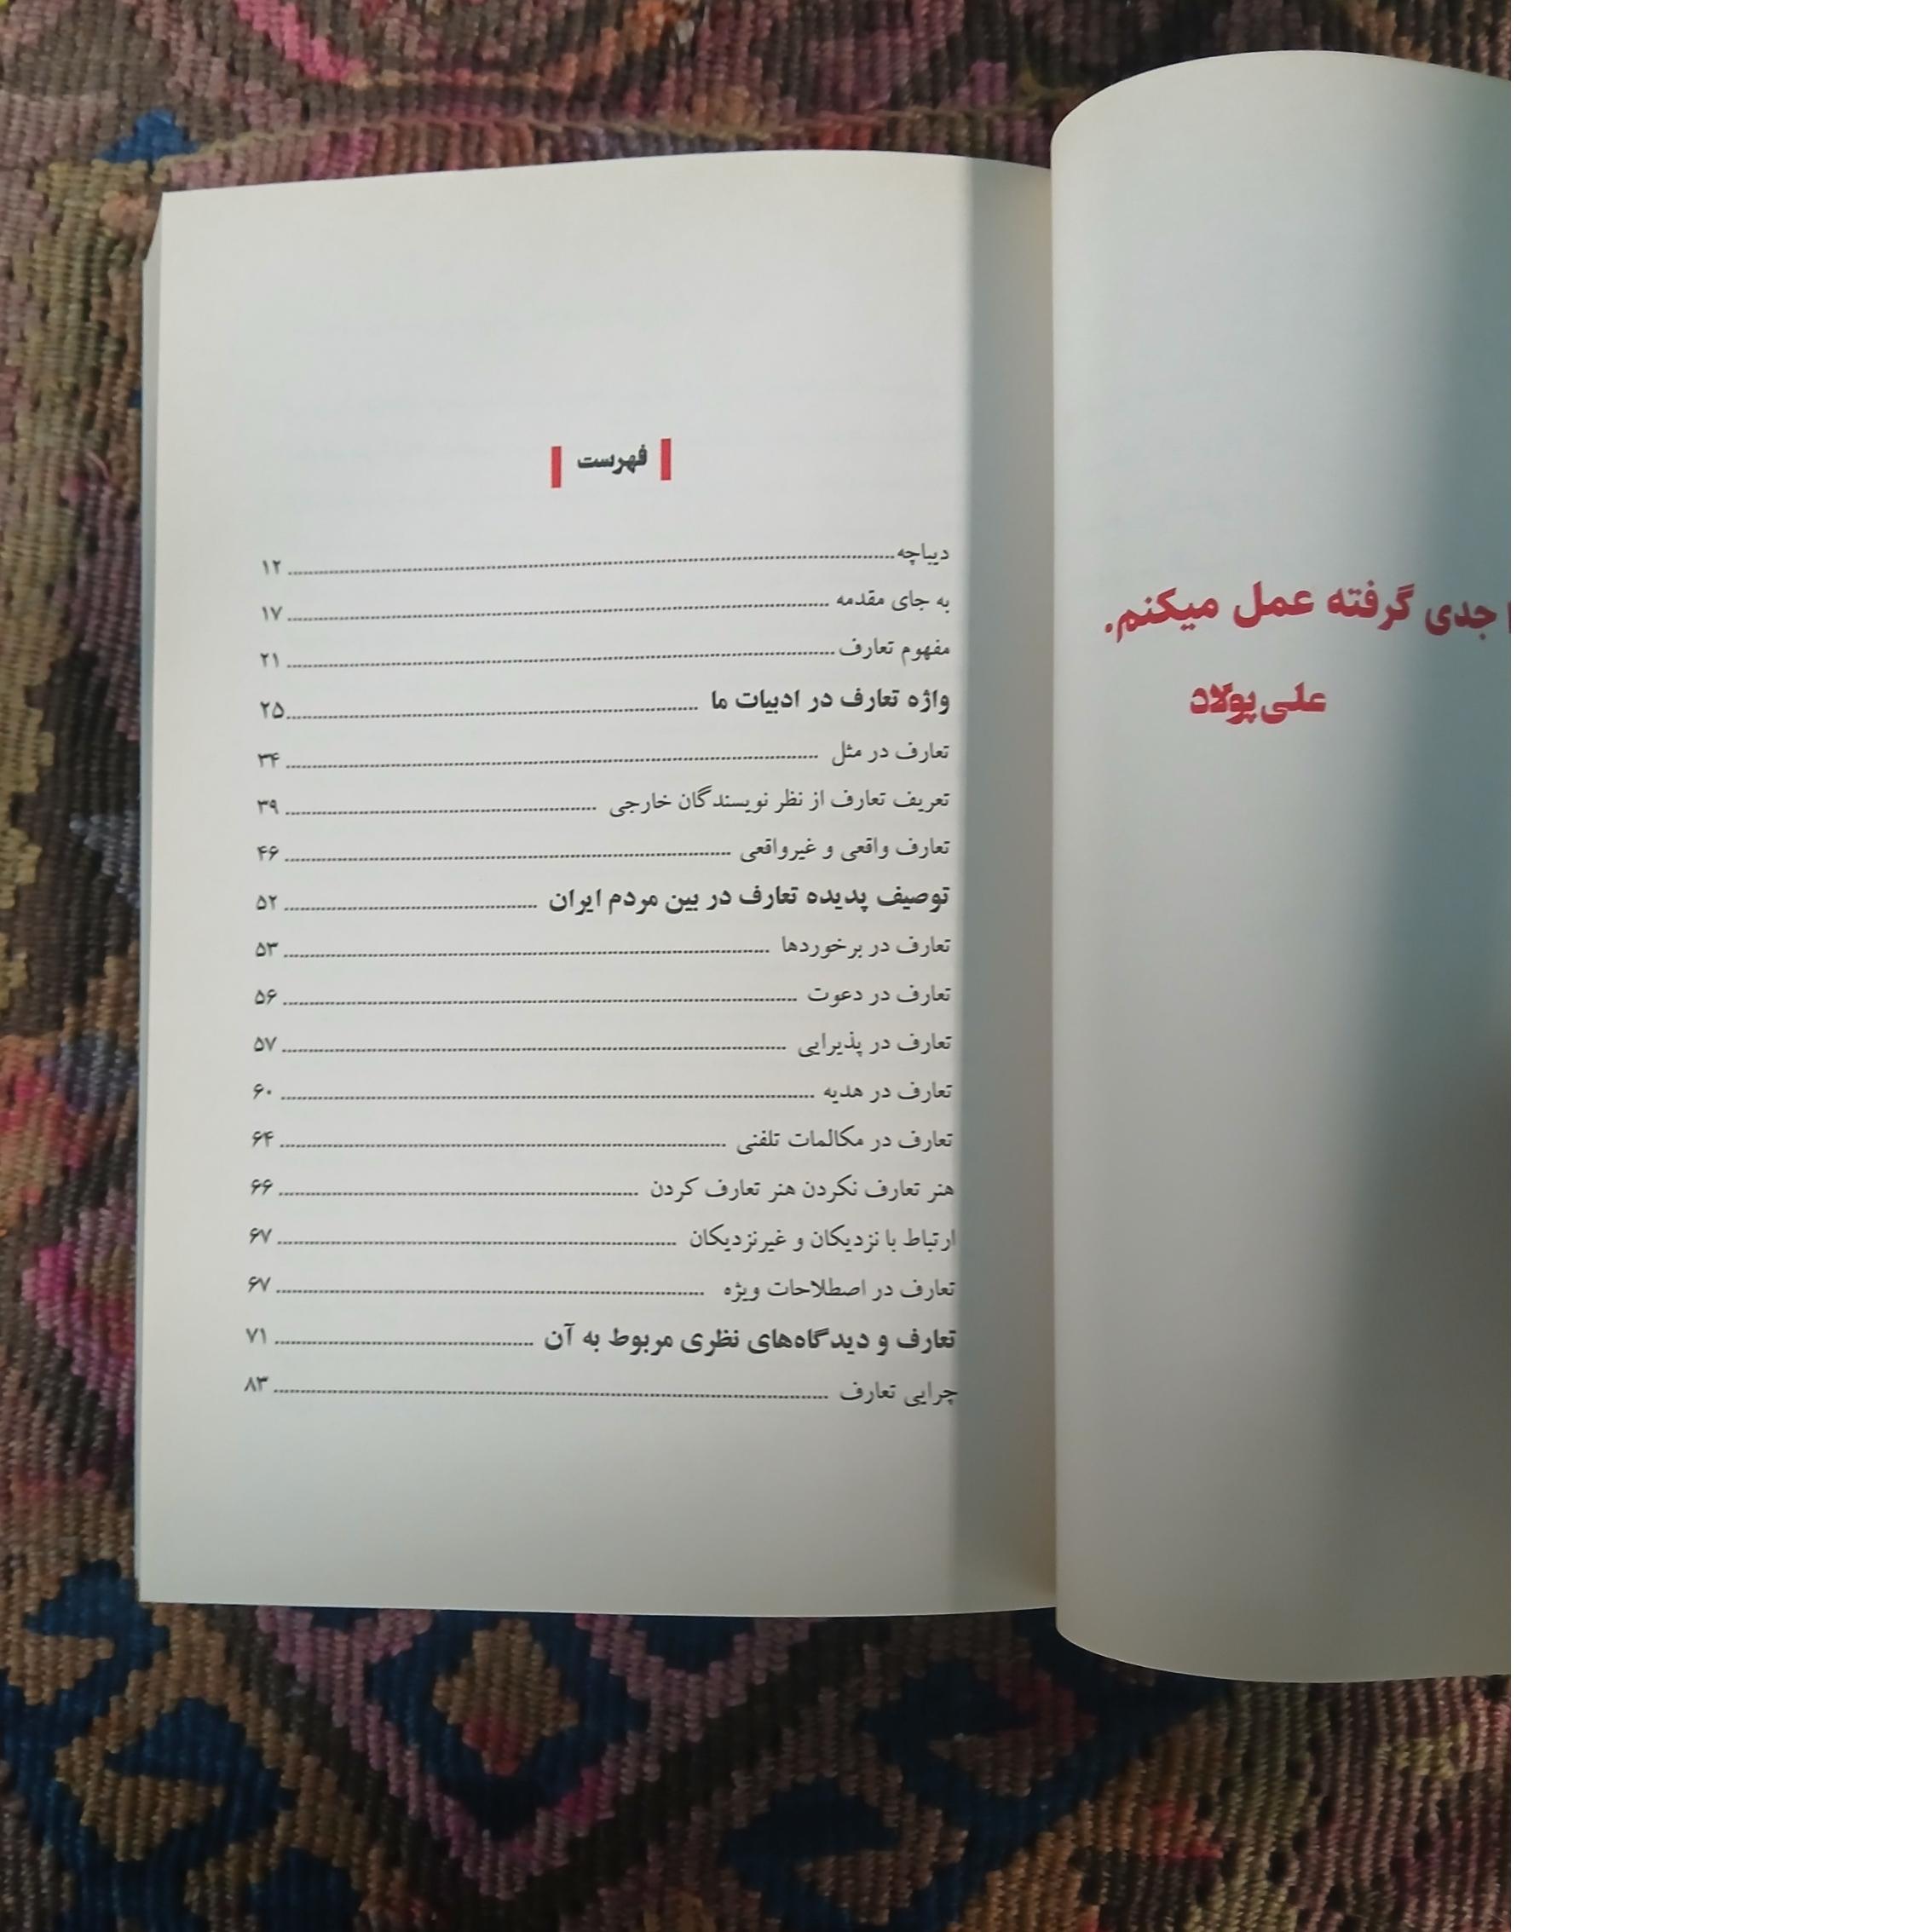 جدی گرفته عمل میکنم.
علی‌پولاد
فهرست
دیباچه ۱۲
به جای مقدمه ۱۷
مفهوم تعارف ۲۱
واژه تعارف در ادبیات ما ۲۵
تعارف در مثل ۳۴
تعریف تعارف از نظر نویسندگان خارجی ۳۹
تعارف واقعی و غیرواقعی ۴۶
توصیف پدیده تعارف در بین مردم ایران ۵۲
تعارف در برخوردها ۵۳
تعارف در دعوت ۵۶
تعارف در پذیرایی ۵۷
تعارف در هدیه ۶۰
تعارف در مکالمات تلفنی ۶۴
هنر تعارف نکردن هنر تعارف کردن ۶۶
ارتباط با نزدیکان و غیرنزدیکان ۶۷
تعارف در اصطلاحات ویژه ۶۷
تعارف و دیدگاه‌های نظری مربوط به آن ۷۱
چرایی تعارف ۸۳